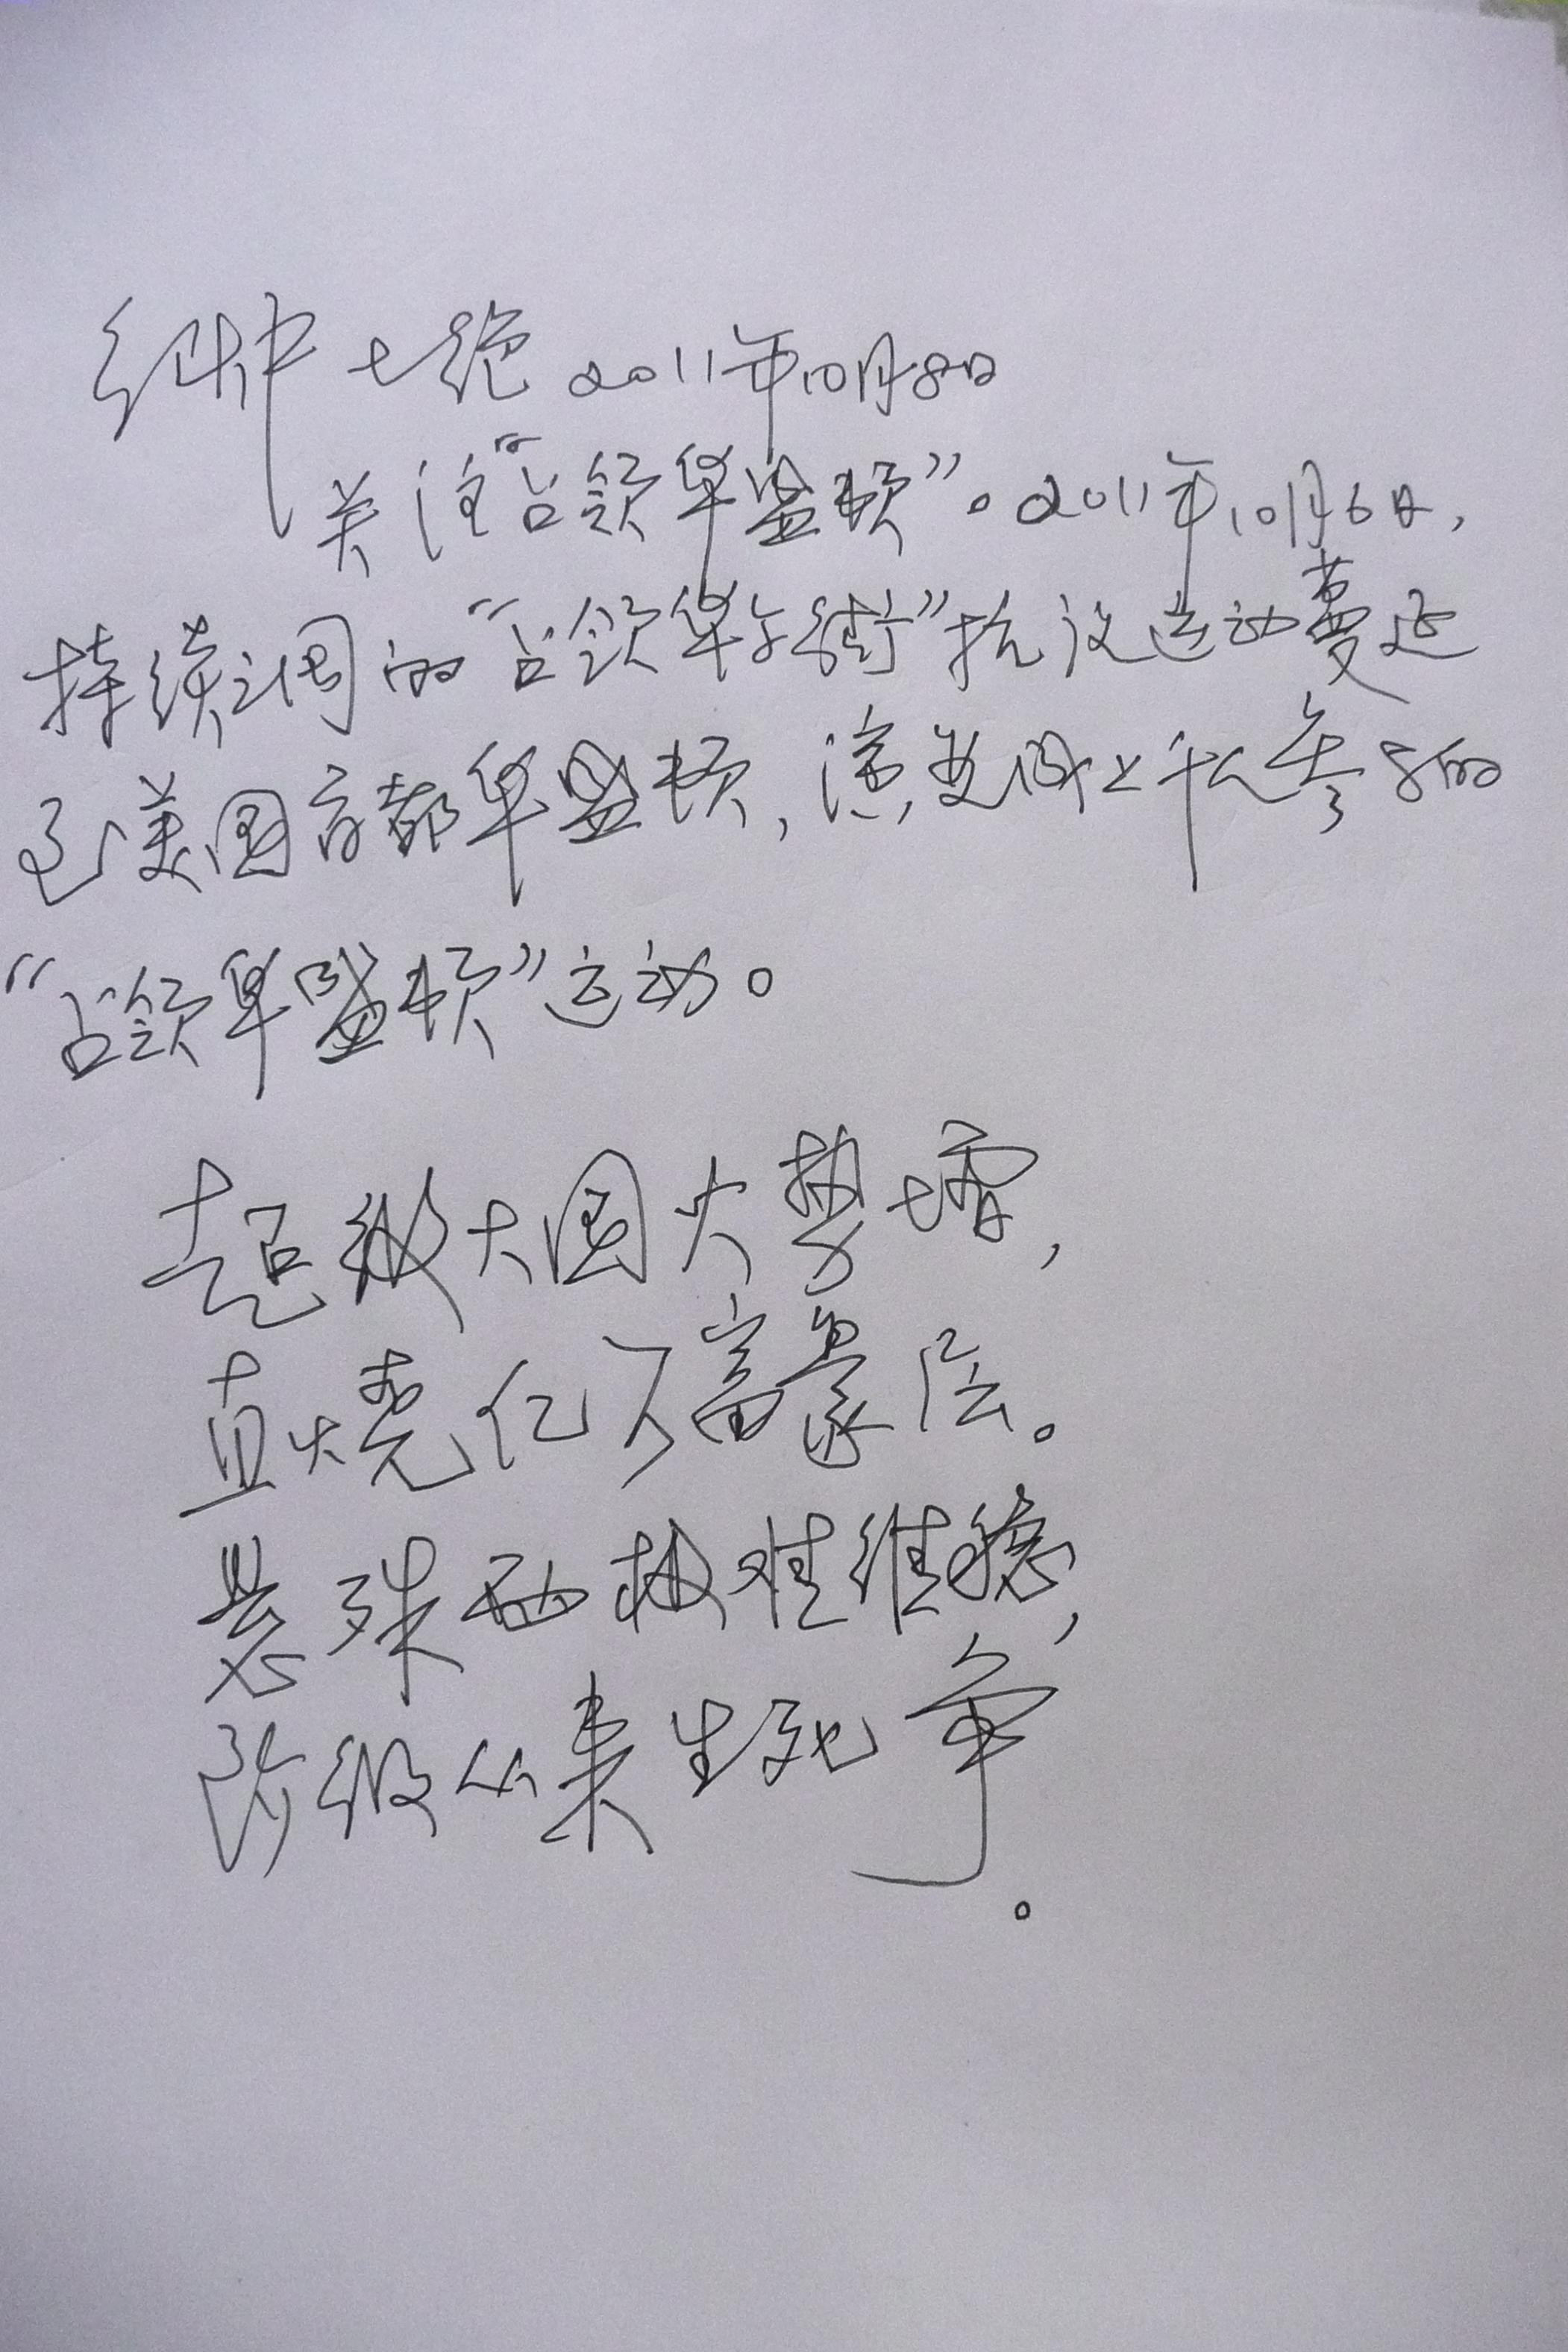 七绝 2011年10月8日
关注“占领华盛顿”。2011年10月6日,
持续三周的“占领华尔街”抗议运动蔓延
到美国首都华盛顿,演变成上千人参与的
“占领华盛顿”运动。
超级大国火势增,
直烧亿万富豪层。
悬殊两极难维稳,
阶级从来生死争。